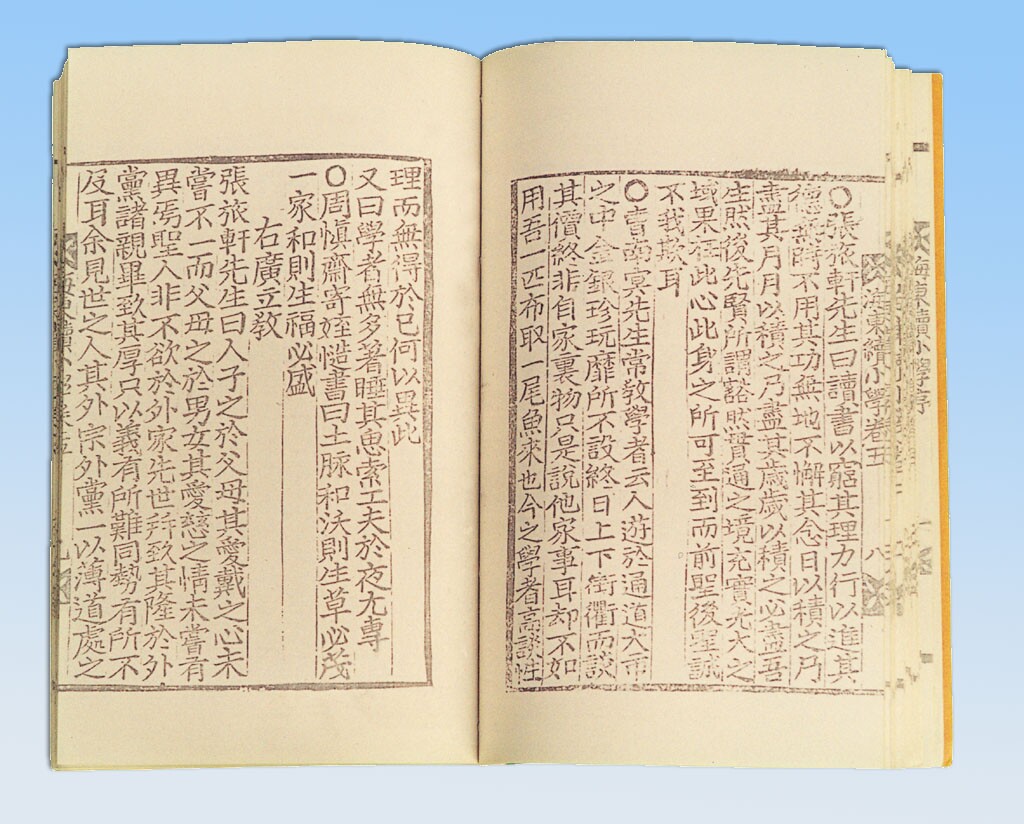 海東續小學序
海東續小學卷五
八
○張旅軒先生曰讀書以窮其理力行以進其
德無時不用其功無地不懈其念日以積之乃
盡其月月以積之乃盡其歲歲以積之必盡吾
生然後先賢所謂豁然貫通之境充實光大之
域果在此心此身之所可至到而前聖後聖誠
不我欺耳
○曺南冥先生常敎學者云人遊於通道大市
之中金銀珍玩靡所不設終日上下街衢而談
其價終非自家裏物只是說他家事耳却不如
用吾一匹布取一尾魚來也今之學者高談性
理而無得於己何以異此
又曰學者無多著睡其思索工夫於夜尤專
○周愼齋寄姪𢢽書曰土脉和沃則生草必茂
一家和則生福必盛
右廣立敎
張旅軒先生曰人子之於父母其愛戴之心未
嘗不一而父母之於男女其愛慈之情未嘗有
異焉聖人非不欲於外家先世幷致其隆於外
黨諸親畢致其厚只以義有所難同勢有所不
及耳余見世之人其外宗外黨一以薄道處之